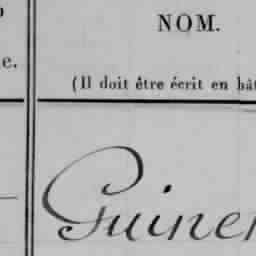 e.
NOM.
(Il doit être écrit en bât
Guiner